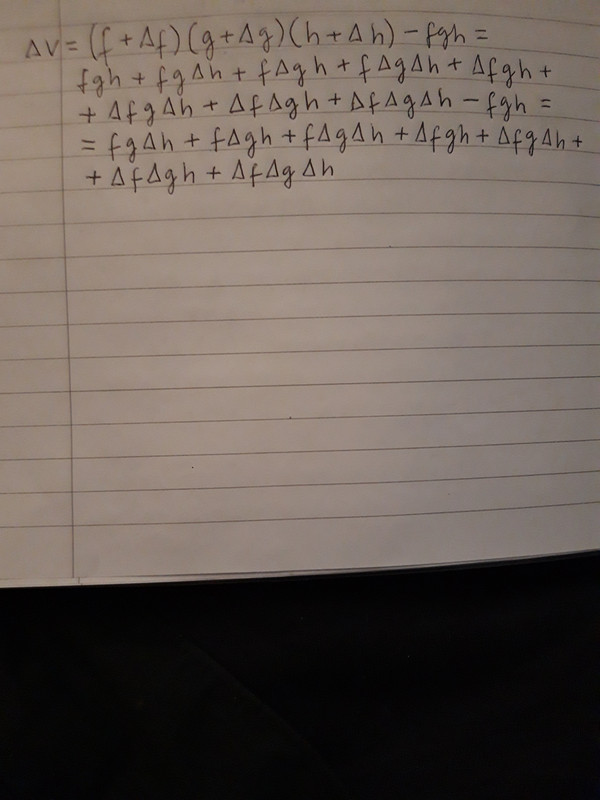 ΔV = (f + Δf)(g + Δg)(h + Δh) - fgh =
fgh + fgΔh + fΔgh + fΔgΔh + Δfgh +
+ ΔfgΔh + ΔfΔgh + ΔfΔgΔh - fgh =
= fgΔh + fΔgh + fΔgΔh + Δfgh + ΔfgΔh +
+ ΔfΔgh + ΔfΔgΔh